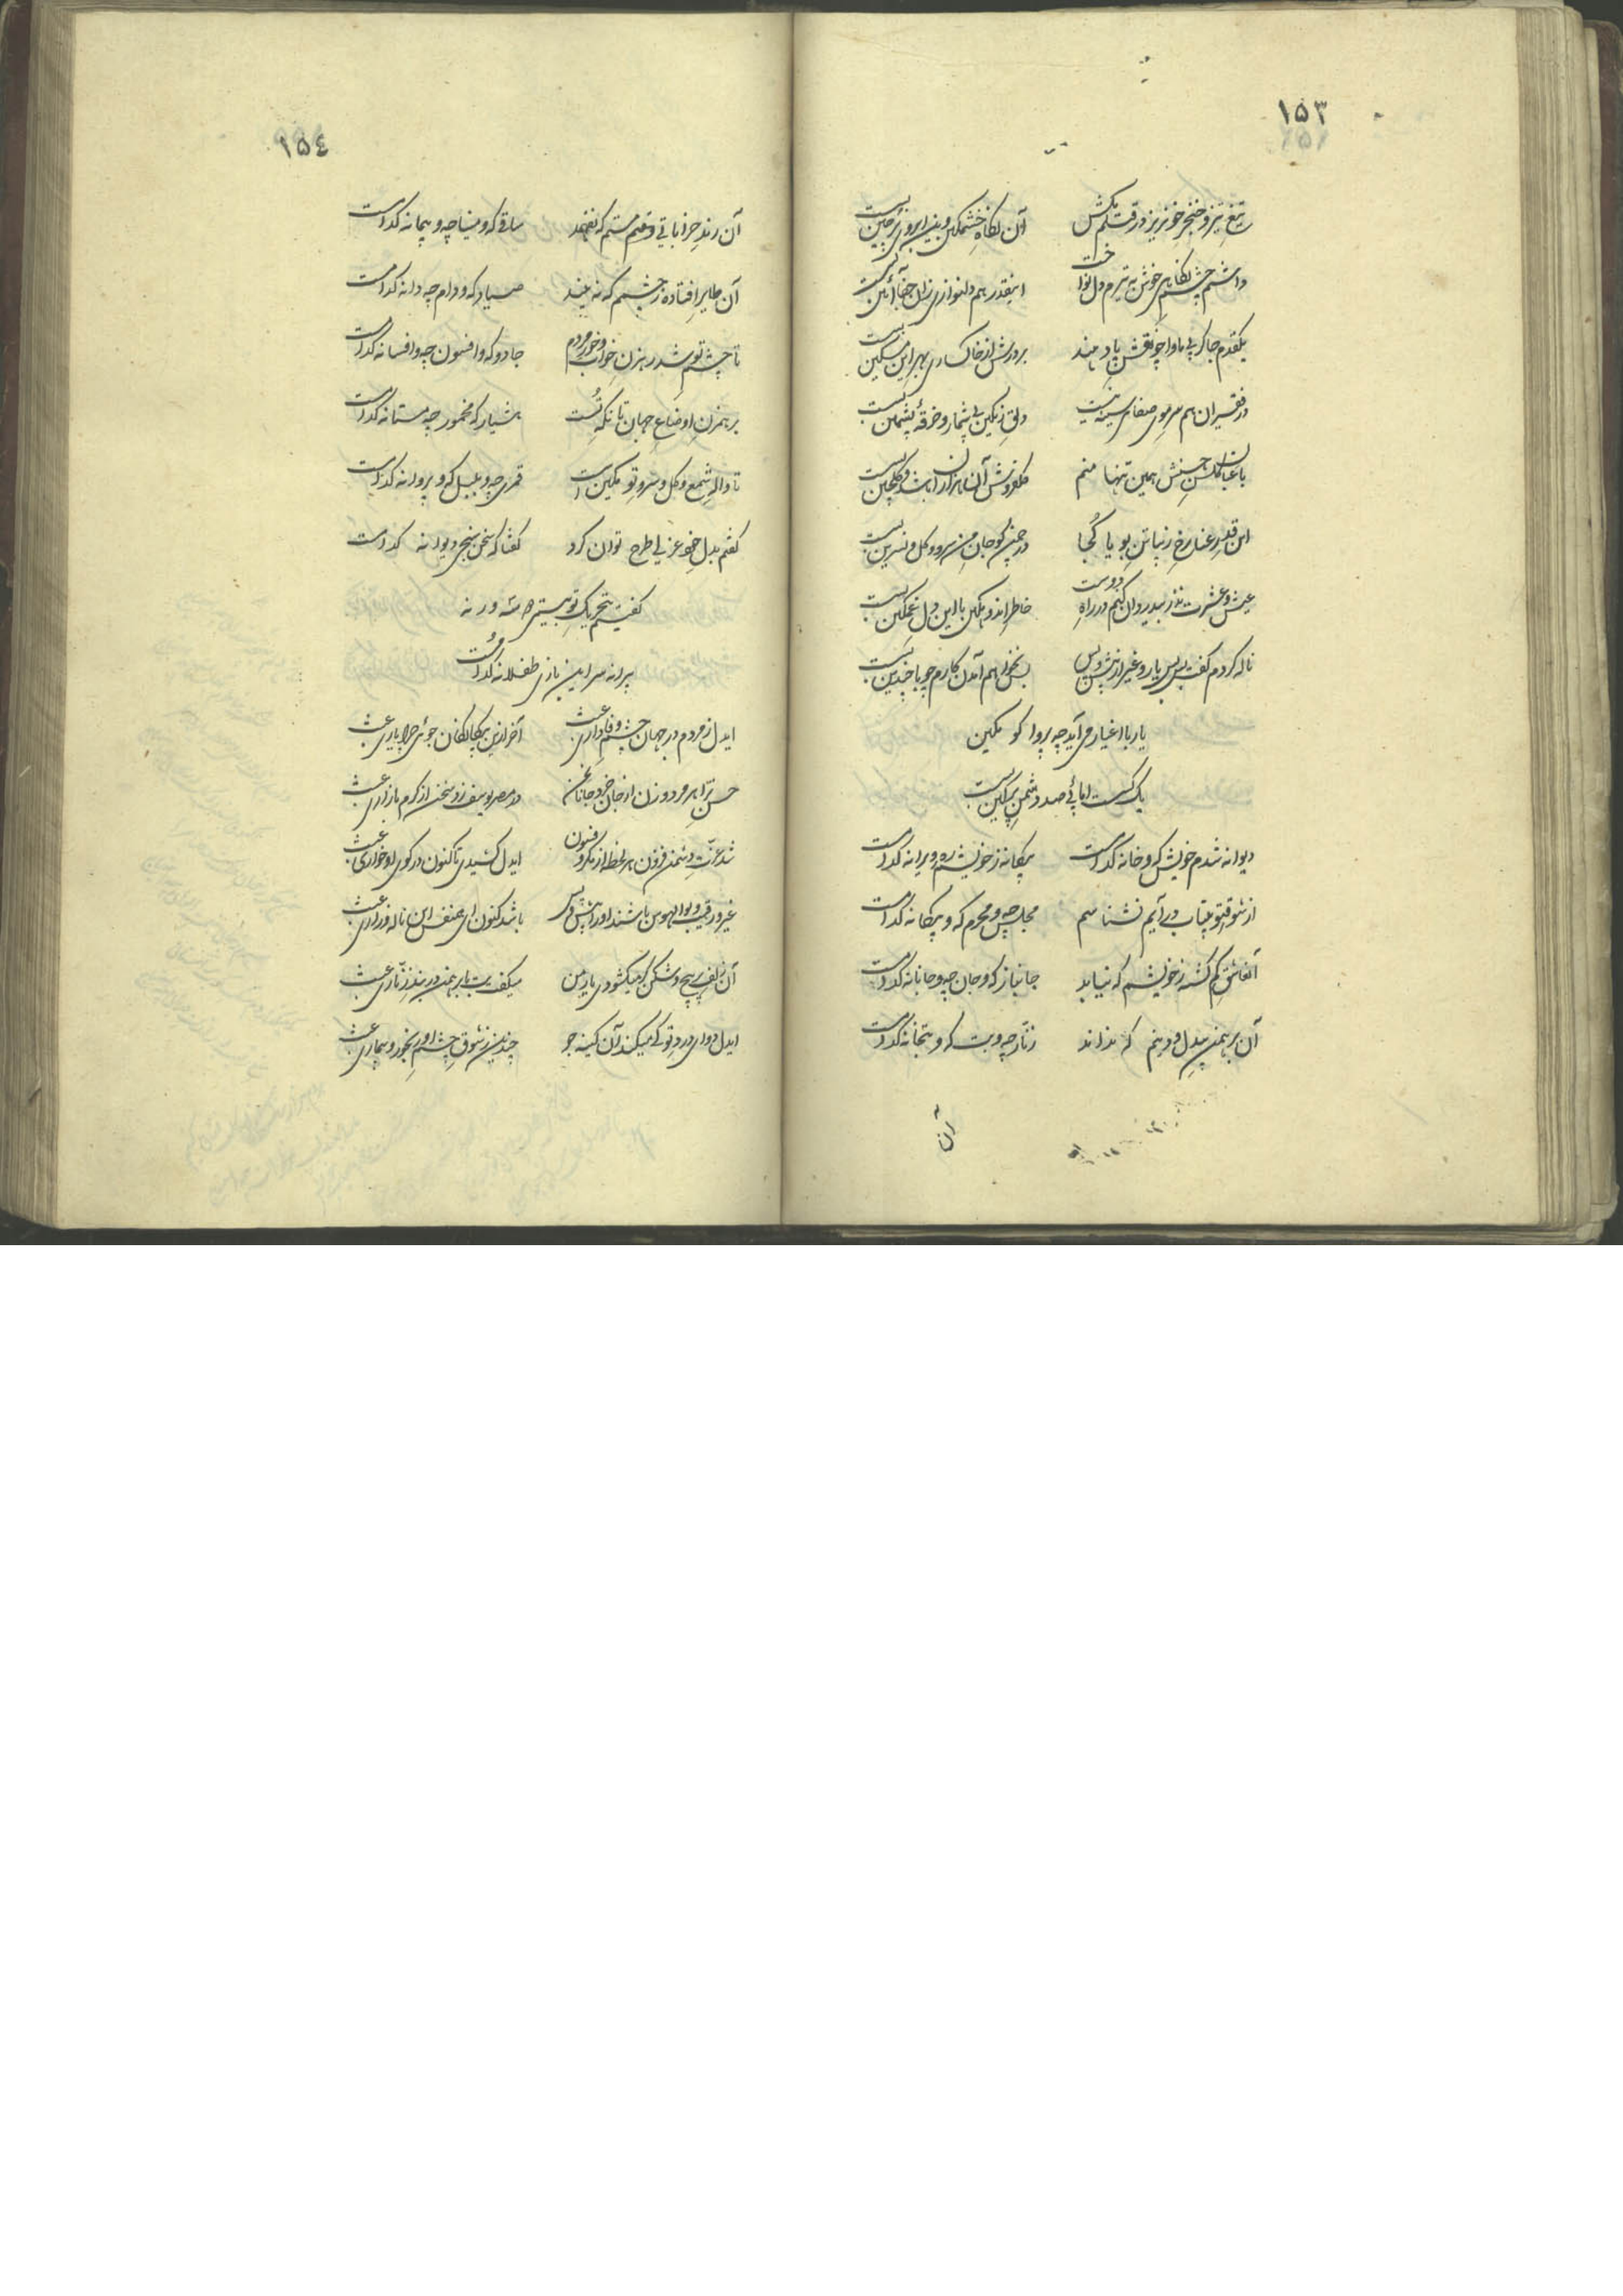 ١٥٣
تیغ تیز و خنجر خونریز در قتلم مکش آن نگاه خشمگین و بین ابروی پرچین بس است
داشتم چشم نگاهی خوش به تیرم دل نواخت اینقدر هم دلنوازی زان جفا آئین بس است
یکقدم جا گر پی ماوا چو نقش پا دهند بر درش از خاکساری بهر این مسکین بس است
در فقیران هم سر موی صفای سینه نیست دلق رنگین بی شمار و خرقهٔ پشمین بس است
باغبان گلشن حسنش همین تنها منم گلفروشش آن هزاران باشد و گلچین بس است
این قد رعنا رخ زیبا تن بویا کجا در چمن گو جان من سرو و گل و نسرین بس است
عیش و عشرت نذر بیدردان کنم در راه دوست خاطر اندوهگین با این دل غمگین بس است
ناله کردم گفت بس بس یار و غیر از پیش و پس بس نخواهم آمدن کارم چو با چندین بس است
یار با اغیار می آید چه پروا گو مکین
یک کس است اما پی صد دشمن پرکین بس است
دیوانه شدم خویش که و خانه کدام است بیگانه ز خویشم ره ویرانه کدام است
از شوق تو بیتاب در آیم نشناسم مجلس چه و محرم که و بیگانه کدام است
آن عاشق گم گشته ز خویشم که نیابد جانباز که و جان چه و جانانه کدام است
آن برهمن بیدل و دینم که نداند زنار چه و بت که و بتخانه کدام است
آن
١٥٤
آن رند خراباتی و مستم که نفهمد ساقی که و مینا چه و پیمانه کدام است
آن طایر افتاده ز چشمم که نه بیند صیاد که و دام چه دانه کدام است
تا چشم تو شد رهزن خواب و خور مردم جادو که و افسون چه و افسانه کدام است
برهمزن اوضاع جهان تا نگه تست هشیار که مخمور چه مستانه کدام است
تا واله شمع و گل و سرو تو مکین است قمری چه و بلبل که و پروانه کدام است
گفتم بدل خود غزلی طرح توان کرد گفتا که سخن سنج چو دیوانه کدام است
گفتیم بتحریک تو بیتی دو سه ورنه
پیرانه سر این بازی طفلانه کدام است
ایدل ز مردم در جهان چشم وفاداری عبث آخر ازین بیگانگان جوئی چرا یاری عبث
حسن ترا هر مرد و زن از جان خرد جانان من در مصر یوسف زو سخن از گرم بازاری عبث
شد عزت دشمن فزون هر لحظه از مکر و فسون ایدل کشیدی تا کنون در کوی او خواری عبث
غیر و رقیب و بوالهوس باشند او را پیش و پس باشد کنون ای همنفس این ناله و زاری عبث
آن زلف پر پیچ و شکن گر میگشودی یار من میگفت بت با برهمن در بند زناری عبث
ایدل دوای درد تو کی میکند آن کینه جو چندین ز شوق چشم او رنجور و بیماری عبث